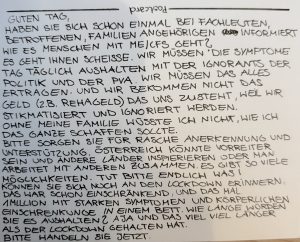 GUTEN TAG,
HABEN SIE SICH SCHON EINMAL BEI FACHLEUTEN,
BETROFFENEN, FAMILIEN ANGEHÖRIGEN INFORMIERT
WIE ES MENSCHEN MIT ME/CFS GEHT?
ES GEHT IHNEN SCHEISSE. WIR MÜSSEN DIE SYMPTOME
TAG TÄGLICH AUSHALTEN MIT DER IGNORANTS DER
POLITIK UND DER PVA. WIR MÜSSEN DAS ALLES
ERTRAGEN. UND WIR BEKOMMEN NICHT DAS
GELD (Z.B. REHAGELD) DAS UNS ZUSTEHT, WEIL WIR
STIKMATISIERT UND IGNORIERT WERDEN.
OHNE MEINE FAMILIE WÜSSTE ICH NICHT, WIE ICH
DAS GANZE SCHAFFEN SOLLTE.
BITTE SORGEN SIE FÜR RASCHE ANERKENNUNG UND
UNTERSTÜTZUNG. ÖSTERREICH KÖNNTE VORREITER
SEIN UND ANDERE LÄNDER INSPIERIEREN ODER MAN
ARBEITET MIT ANDEREN ZUSAMMEN. ES GIBT SO VIELE
MÖGLICHKEITEN. TUT BITTE ENDLICH WAS!
KÖNNEN SIE SICH NOCH AN DEN LOCKDOWN ERINNERN.
DAS WAR SCHON EINSCHRÄNKEND. UND DAS MAL
1MILLION MIT STARKEN SYMPTOMEN UND KÖRPERLICHEN
EINSCHRENKUNGE IN EINEM BETT. WIE LANGE WÜRDEN
SIE ES AUSHALTEN? AJA UND DAS VIEL VIEL LÄNGER
ALS DER LOCKDOWN GEHALTEN HAT.
BITTE HANDELN SIE JETZT.